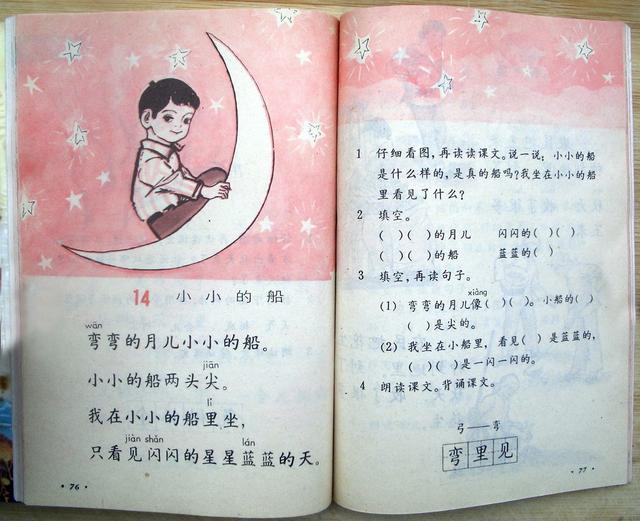 14 小小的船
wān
弯弯的月儿小小的船。
jiān
小小的船两头尖。
lǐ
我在小小的船里坐，
jiàn shǎn lán
只看见闪闪的星星蓝蓝的天。
·76·
1 仔细看图，再读读课文。说一说：小小的船
是什么样的，是真的船吗？我坐在小小的船
里看见了什么？
2 填空。
（ ）（ ）的月儿 闪闪的（ ）（ ）
（ ）（ ）的船 蓝蓝的（ ）
3 填空，再读句子。
xiàng
（1）弯弯的月儿像（ ）（ ）。小船的（ ）
（ ）是尖的。
（2）我坐在小船里，看见（ ）是蓝蓝的，
（ ）（ ）是一闪一闪的。
4 朗读课文。背诵课文。
弓——弯
弯里见
·77·